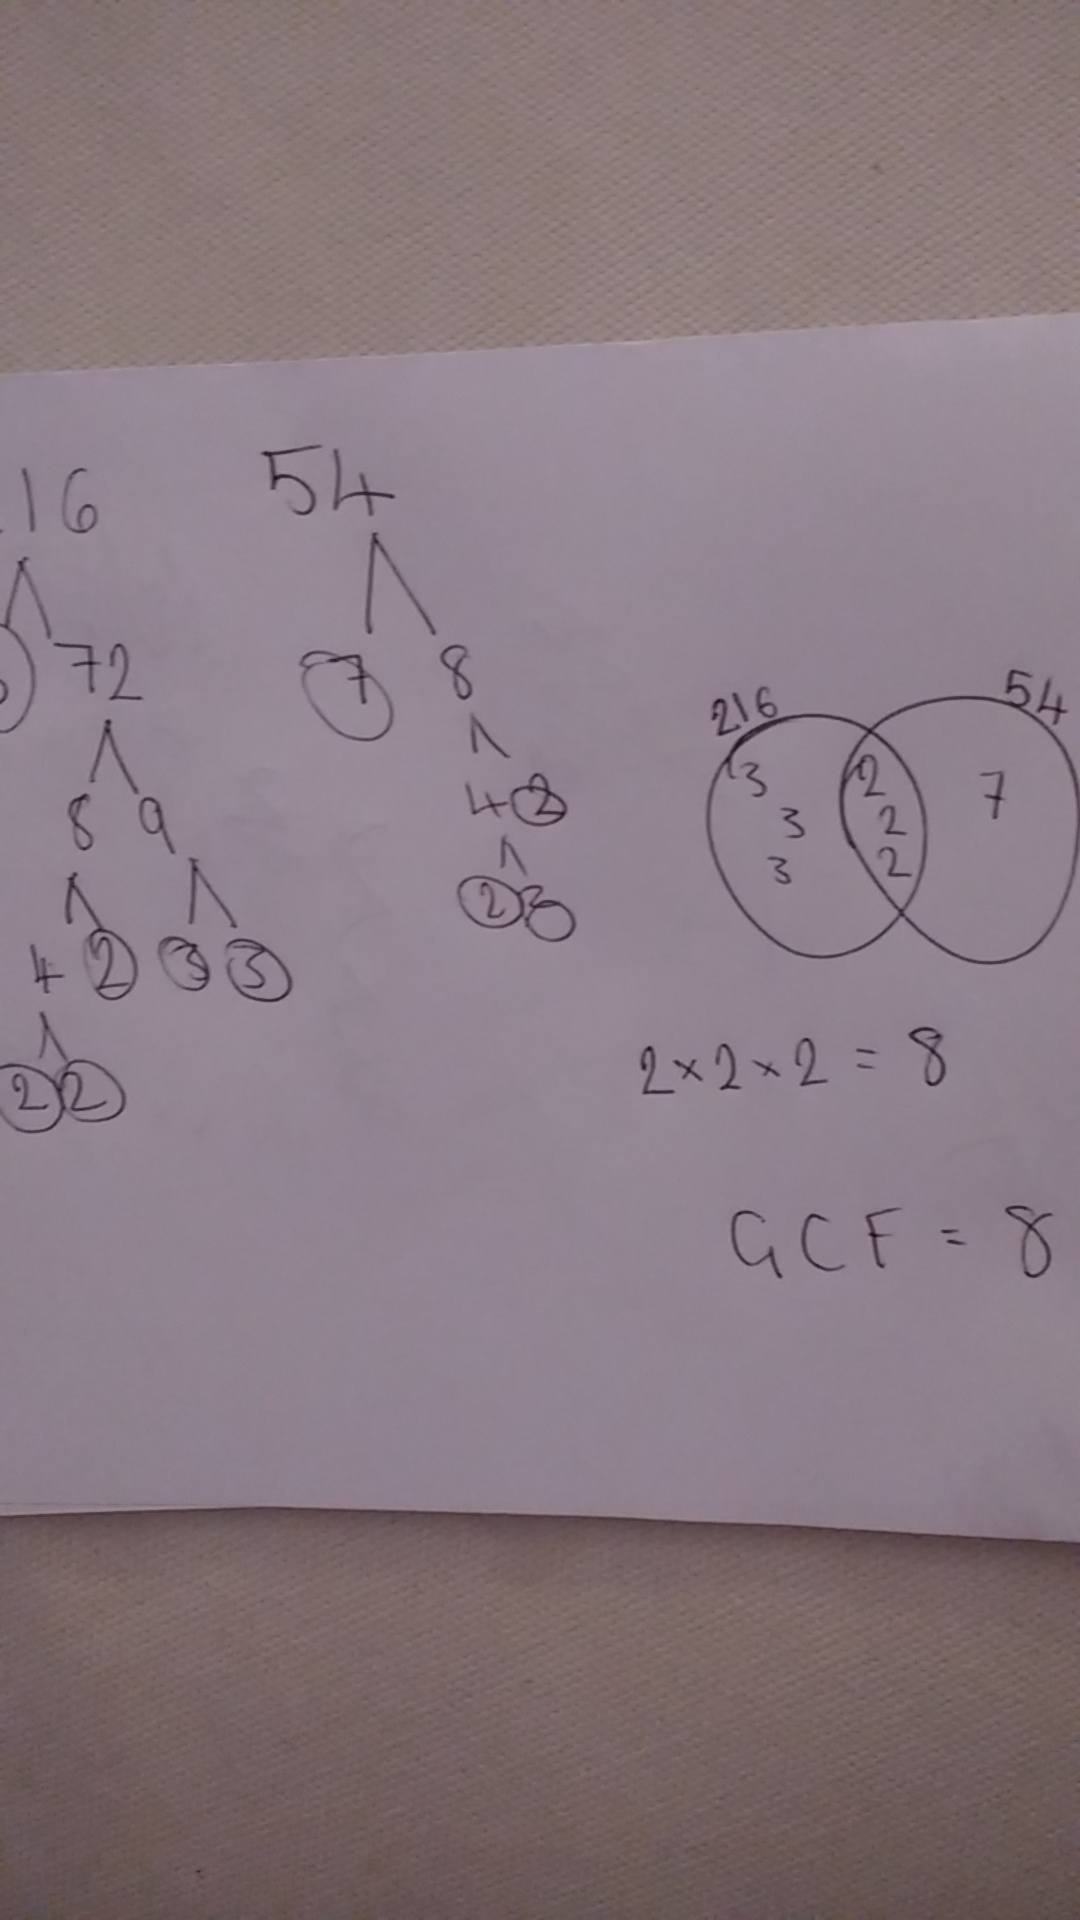 16 54
72 7 8
8 9 4 2
4 2 3 3 2
2 2
216 54
3 2 7
3 2
3 2
2 × 2 × 2 = 8
GCF = 8